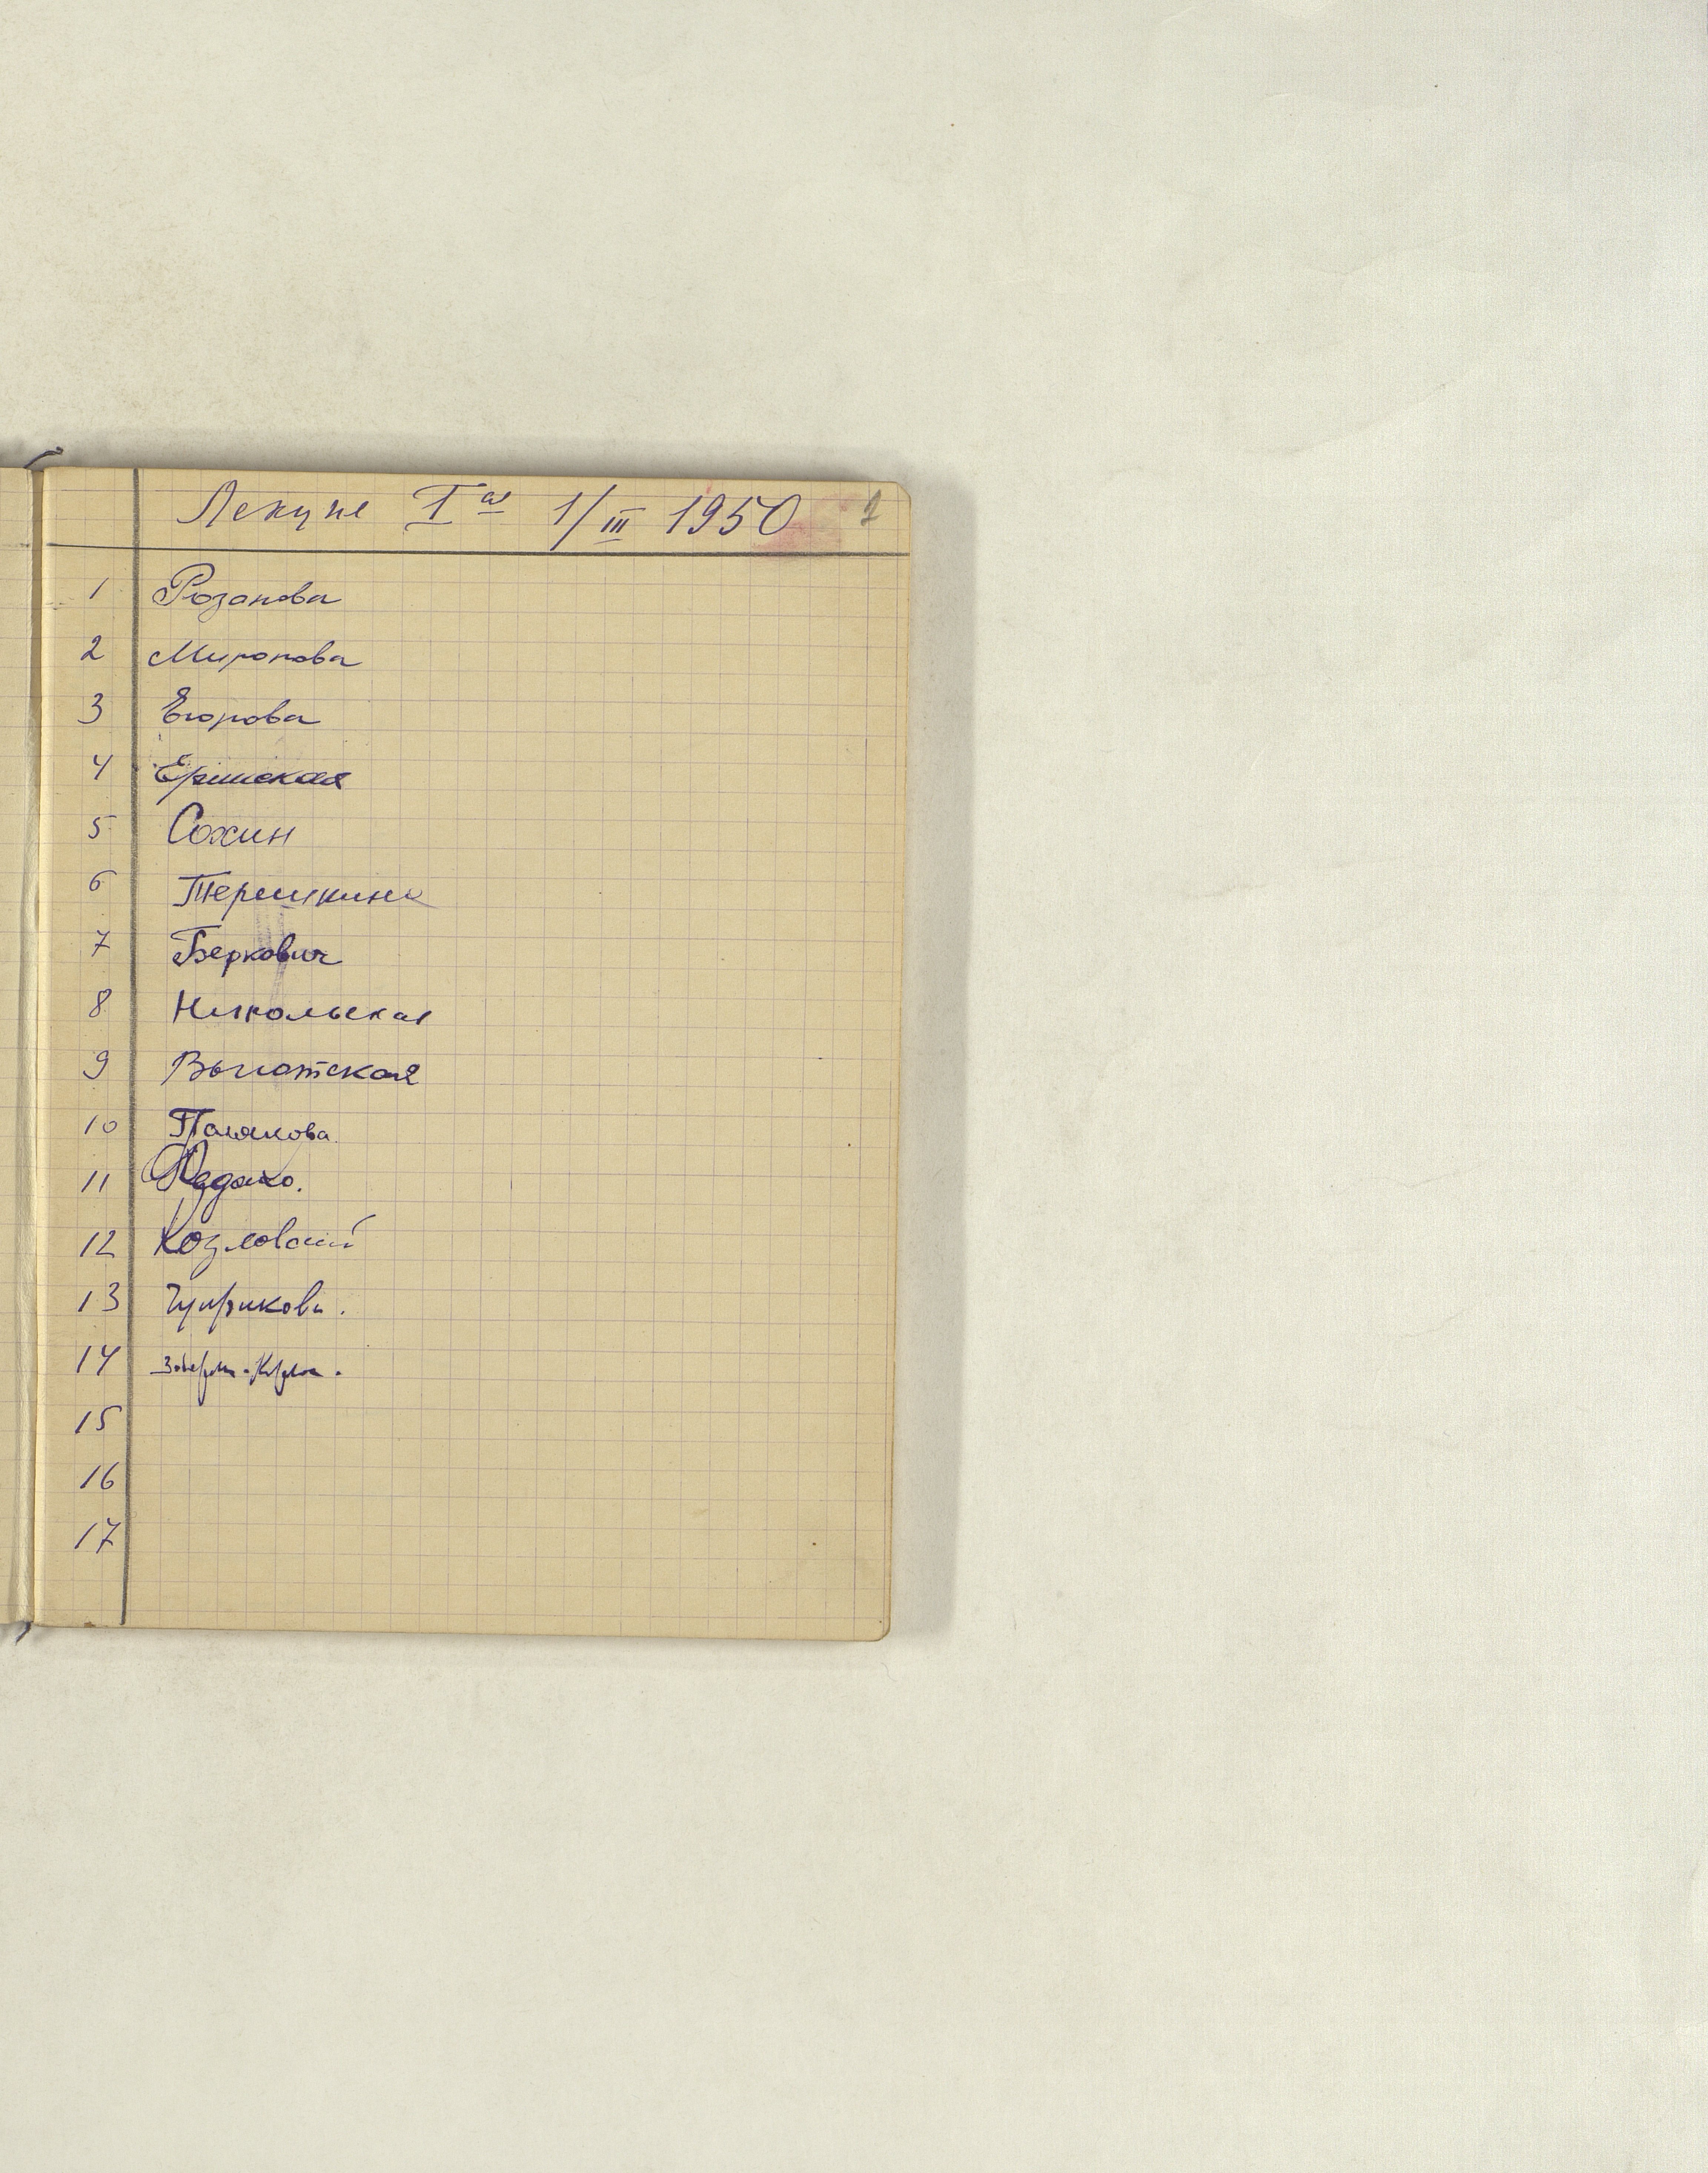 Лекция I ая 1/III 1950
1 Розанова
2 Миронова
3 Егорова
4 Ершская
5 Сохин
6 Терешкина
7 Беркович
8 Никольская
9 Высотская
10 Полякова.
11
12 Козловский
13
14
15
16
17